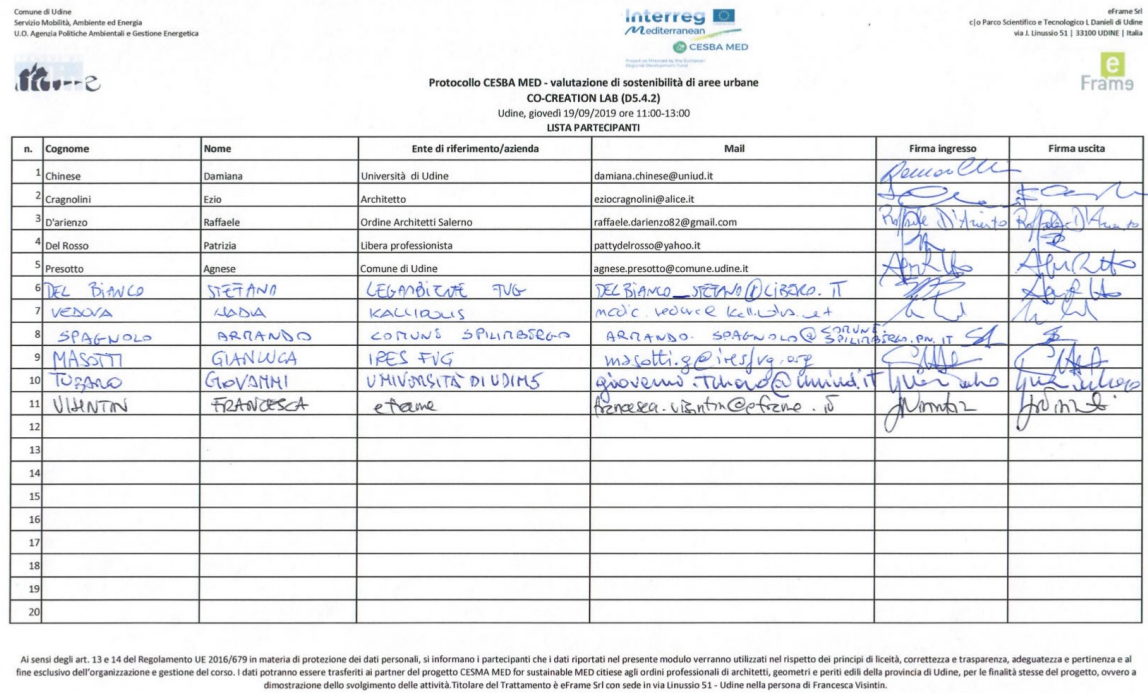 Comune di Udine
Servizio Mobilità, Ambiente ed Energia
U.O. Agenzia Politiche Ambientali e Gestione Energetica
Interreg
Mediterranean
CESBA MED
eFrame Srl
c|o Parco Scientifico e Tecnologico L Danieli di Udine
via J. Linussio 51 | 33100 UDINE | Italia
e
Frame
Protocollo CESBA MED - valutazione di sostenibilità di aree urbane
CO-CREATION LAB (D5.4.2)
Udine, giovedì 19/09/2019 ore 11:00-13:00
LISTA PARTECIPANTI
n. Cognome Nome Ente di riferimento/azienda Mail Firma ingresso Firma uscita
1 Chinese Damiana Università di Udine damiana.chinese@uniud.it
2 Cragnolini Ezio Architetto eziocragnolini@alice.it
3 D'arienzo Raffaele Ordine Architetti Salerno raffaele.darienzo82@gmail.com
4 Del Rosso Patrizia Libera professionista pattydelrosso@yahoo.it
5 Presotto Agnese Comune di Udine agnese.presotto@comune.udine.it
6 DEL BIANCO STEFANO LEGAMBIENTE FVG DELBIANCO_STEFANO@LIBERO.IT
7 VEDOVA NADIA KALLIPOLIS
8 SPAGNOLO ARMANDO COMUNE SPILIMBERGO ARMANDO.SPAGNOLO@COMUNE.SPILIMBERGO.PN.IT
9 MASOTTI GIANLUCA IRES FVG masotti.g@iresfvg.org
10 GIOVANNI UNIVERSITÀ DI UDINE
11 VISINTIN FRANCESCA eframe francesca.visintin@eframe.it
12
13
14
15
16
17
18
19
20
Ai sensi degli art. 13 e 14 del Regolamento UE 2016/679 in materia di protezione dei dati personali, si informano i partecipanti che i dati riportati nel presente modulo verranno utilizzati nel rispetto dei principi di liceità, correttezza e trasparenza, adeguatezza e pertinenza e al
fine esclusivo dell'organizzazione e gestione del corso. I dati potranno essere trasferiti ai partner del progetto CESMA MED for sustainable MED citiese agli ordini professionali di architetti, geometri e periti edili della provincia di Udine, per le finalità stesse del progetto, ovvero a
dimostrazione dello svolgimento delle attività.Titolare del Trattamento è eFrame Srl con sede in via Linussio 51 - Udine nella persona di Francesca Visintin.